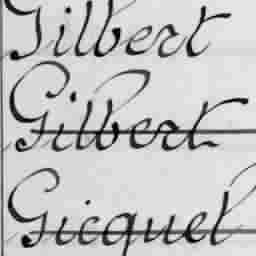 Gilbert
Gilbert
Gicquel